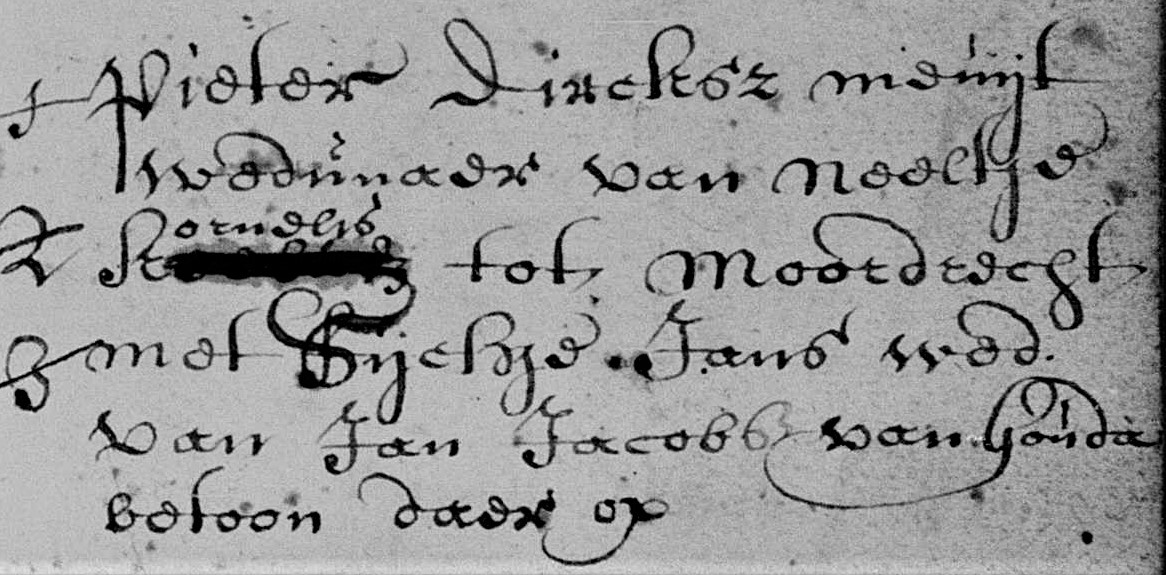 1 Pieter Dircksz meuijt
wedúnaer van Neeltje
2 Kornelis tot Moordrecht
3 met Sijchje Jans wed.
van Jan Jacobs van Goúda
betoon daer op